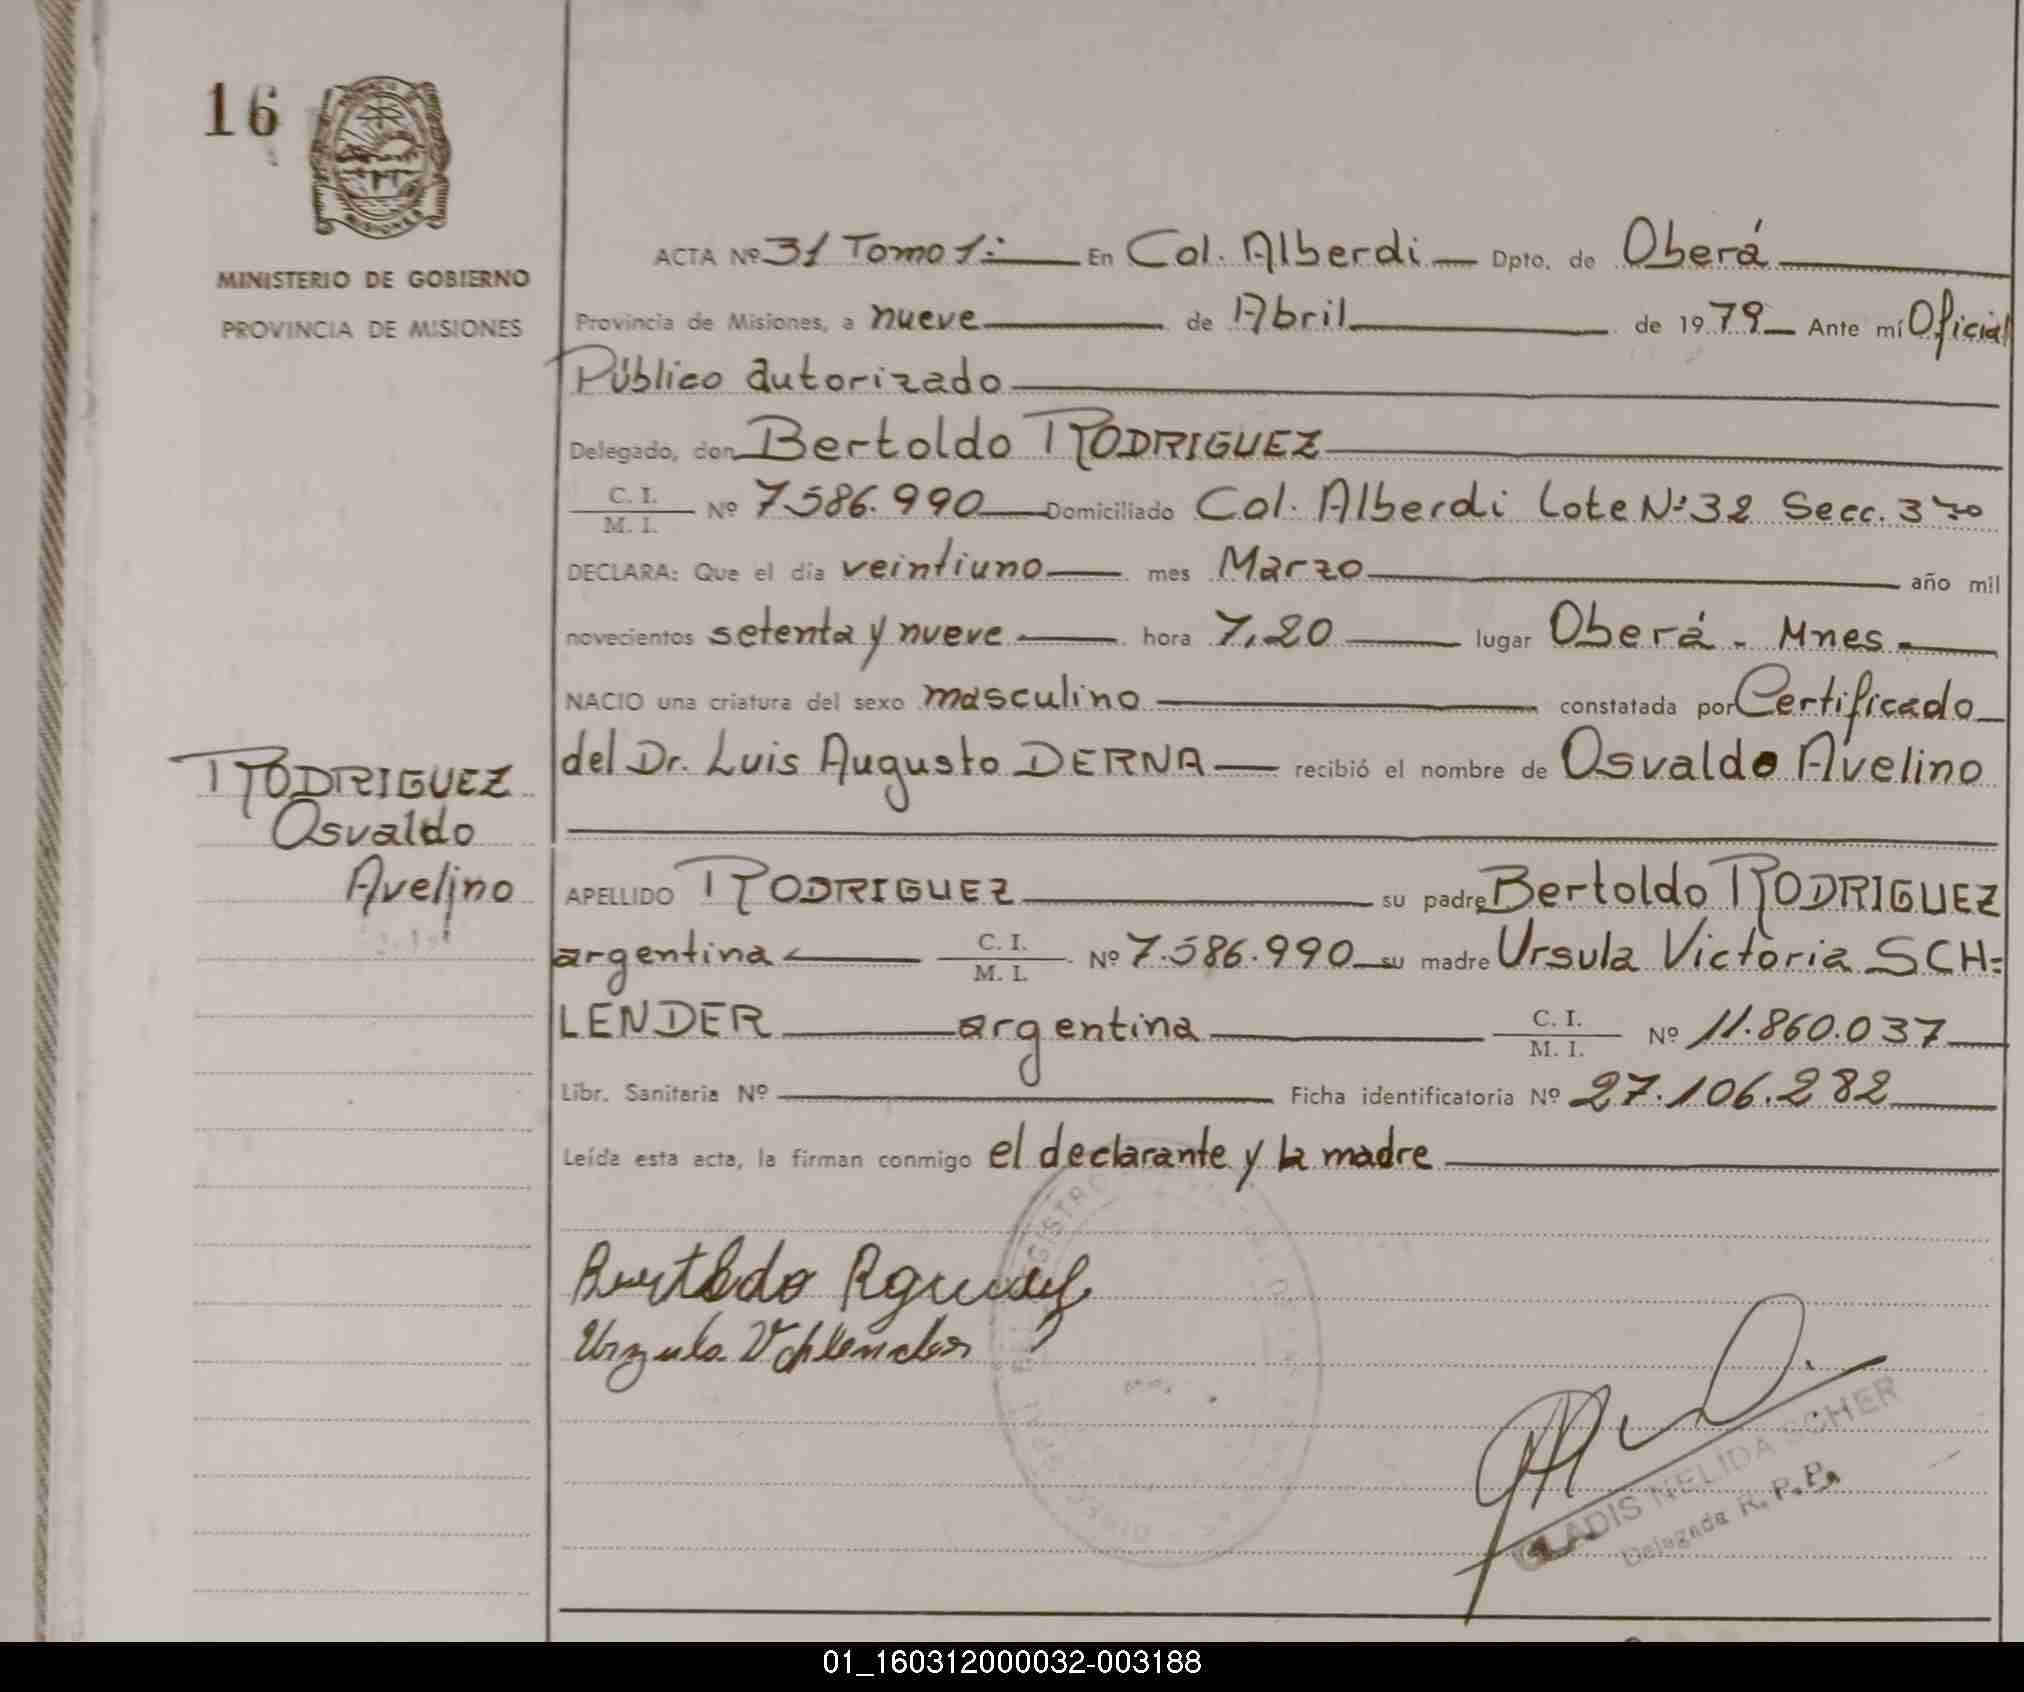 16
MISIONES
MINISTERIO DE GOBIERNO
PROVINCIA DE MISIONES
ACTA Nº 31 Tomo 1: En Col. Alberdi Dpto. de Oberá
Provincia de Misiones, a nueve de Abril de 1979 Ante mí Oficial
Público autorizado
Delegado, don Bertoldo RODRIGUEZ
C. I.
M. I. Nº 7.586.990 Domiciliado Col. Alberdi Lote Nº 32 Secc. 3ra
DECLARA: Que el día veintiuno mes Marzo año mil
novecientos setenta y nueve hora 7,20 lugar Oberá - Mnes.
NACIO una criatura del sexo masculino constatada por Certificado
del Dr. Luis Augusto DERNA recibió el nombre de Osvaldo Avelino
RODRIGUEZ
Osvaldo
Avelino
APELLIDO RODRIGUEZ su padre Bertoldo RODRIGUEZ
argentina C. I.
M. I. Nº 7.586.990 su madre Ursula Victoria SCH=
LENDER argentina C. I.
M. I. Nº 11.860.037
Libr. Sanitaria Nº Ficha identificatoria Nº 27.106.282
Leída esta acta, la firman conmigo el declarante y la madre
GLADIS NELIDA SCHER
Delegada R. P. P.
01_160312000032-003188